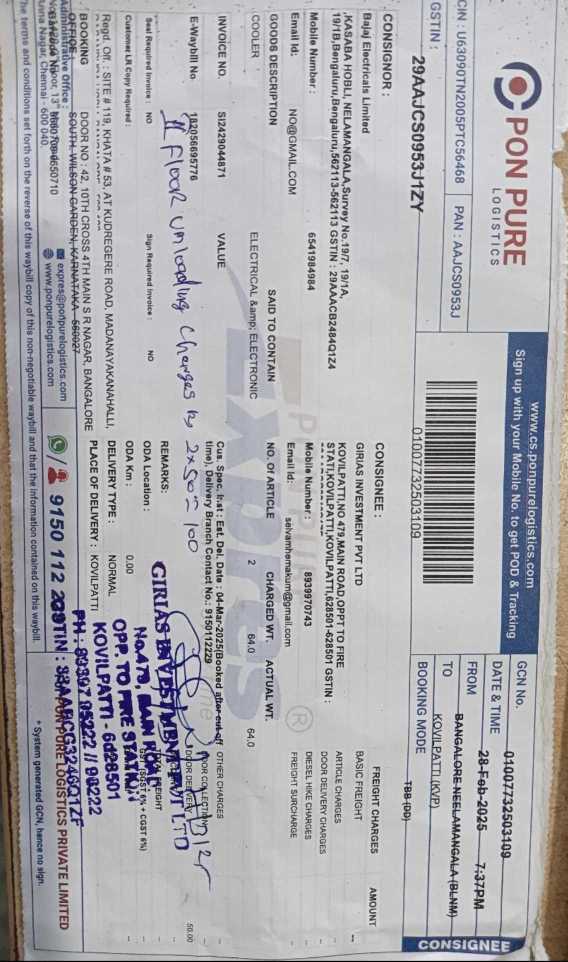 PON PURE
LOGISTICS
www.cs.ponpurelogistics.com
Sign up with your Mobile No. to get POD & Tracking
CIN : U63090TN2005PTC56468 PAN : AAJCS0953J
GSTIN :
29AAJCS0953J1ZY
01007732503109
GCN No. 01007732503109
DATE & TIME 28-Feb-2025 7:37PM
FROM BANGALORE NEELAMANGALA (BLNM)
TO KOVILPATTI (KVP)
BOOKING MODE TBB (DD)
CONSIGNEE
CONSIGNOR :
Bajaj Electricals Limited
,KASABA HOBLI, NELAMANGALA,Survey No.19/7, 19/1A,
19/1B,Bengaluru,Bengaluru,562113-562113 GSTIN : 29AAACB2484Q1Z4
Mobile Number : 6541984984
Email Id: NO@GMAIL.COM
CONSIGNEE :
GIRIAS INVESTMENT PVT LTD
KOVILPATTI,NO 479,MAIN ROAD,OPPT TO FIRE
STATI,KOVILPATTI,KOVILPATTI,628501-628501 GSTIN :
Mobile Number : 8939970743
Email Id: selvamhemakum@gmail.com
FREIGHT CHARGES AMOUNT
BASIC FREIGHT --
ARTICLE CHARGES
DOOR DELIVERY CHARGES
DIESEL HIKE CHARGES
FREIGHT SURCHARGE
OTHER CHARGES
DOOR COLLECTION
DOOR DELIVERY 50.00
GOODS DESCRIPTION SAID TO CONTAIN NO. OF ARTICLE CHARGED WT. ACTUAL WT.
COOLER ELECTRICAL &amp; ELECTRONIC 2 64.0 64.0
Express
INVOICE NO. VALUE
SI2429044871
Cus. Spec. Inst : Est. Del. Date : 04-Mar-2025(Booked after cut off
time), Delivery Branch Contact No.: 9150112229
E-Waybill No 182056695776
II Floor unloading charges Rs 2x50= 100
Seal Required Invoice : NO Sign Required Invoice : NO
Customer LR Copy Required :
REMARKS:
ODA Location :
ODA Km : 0.00
DELIVERY TYPE : NORMAL
PLACE OF DELIVERY : KOVILPATTI
GIRIAS INVESTMENT PVT LTD
No.479, MAIN ROAD
OPP. TO FIRE STATION
KOVILPATTI - 628501
Regd. Off. : SITE # 119, KHATA # 53, AT KUDREGERE ROAD, MADANAYAKANAHALLI,
BOOKING DOOR NO : 42, 10TH CROSS 4TH MAIN S R NAGAR, BANGALORE
OFFICE : SOUTH, WILSON GARDEN, KARNATAKA - 560027
Administrative Office :
Anna Nagar, Chennai - 600 040.
expres@ponpurelogistics.com
www.ponpurelogistics.com
9150 112 229
PON PURE LOGISTICS PRIVATE LIMITED
The terms and conditions set forth on the reverse of this waybill copy of this non-negotiable waybill and that the information contained on this waybill.
* System generated GCN, hence no sign.